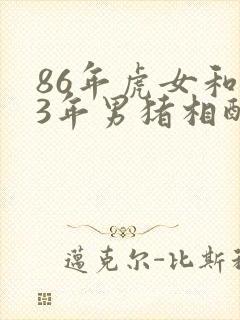 86年虎女和
3年男猪相配
邁克尔-比斯利